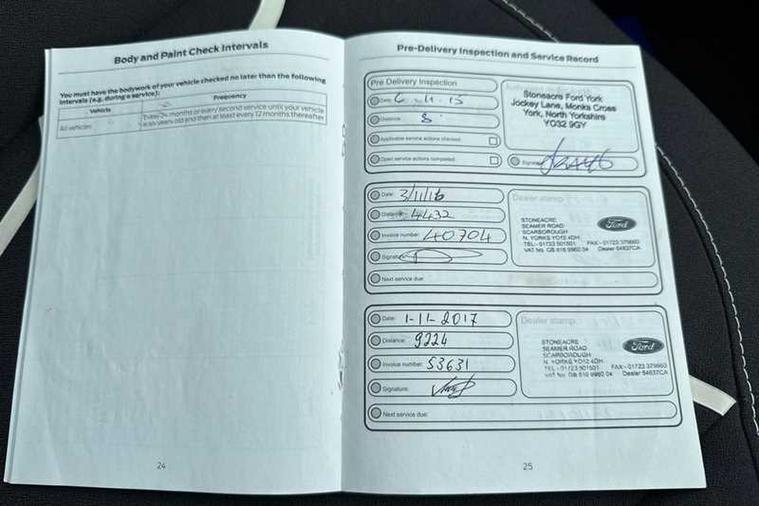 Body and Paint Check Intervals
You must have the bodywork of your vehicle checked no later than the following
intervals (e.g. during a service):
Vehicle Frequency
All vehicles
Every 24 months or every second service until your vehicle
is six years old and then at least every 12 months thereafter
24
Pre-Delivery Inspection and Service Record
Pre Delivery Inspection
Date: 6.11.15
Distance: 8
Applicable service actions checked:
Open service actions completed:
Stoneacre Ford York
Jockey Lane, Monks Cross
York, North Yorkshire
YO32 9GY
Signature:
Date: 3/11/16
Distance: 4432
Invoice number: 40704
Signature:
Next service due:
Dealer stamp
STONEACRE
SEAMER ROAD
SCARBOROUGH
N. YORKS YO12 4DH
TEL - 01723 501501 FAX - 01723 379660
VAT No. GB 616 9960 04 Dealer 54637CA
Ford
Date: 1-11-2017
Distance: 9224
Invoice number: 53631
Signature:
Next service due:
Dealer stamp
STONEACRE
SEAMER ROAD
SCARBOROUGH
N. YORKS YO12 4DH
TEL - 01723 501501 FAX - 01723 379660
Ford
25